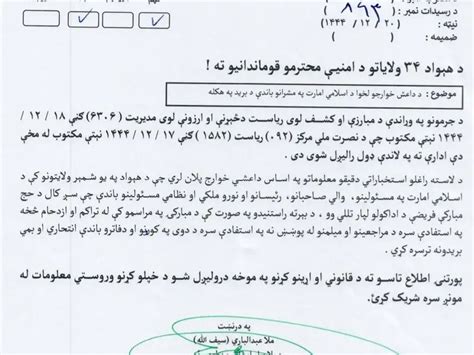 د رسیدات نمبر : ۸۹۳
نېټه : ۲۰ / ۱۲ / ۱۴۴۴
ضمیمه :
د هېواد ۳۴ ولایاتو د امنیې محترمو قوماندانیو ته !
موضوع : د داعش خوارجو لخوا د اسلامي امارت په مشرانو باندې د برید په هکله
د جرمونو په وړاندې د مبارزې او کشف لوی ریاست دڅېړنې او ارزونې لوی مدیریت (۶۳۰۶) ګڼې ۱۸ / ۱۲ /
۱۴۴۴ نېټې مکتوب چې د نصرت ملي مرکز (۰۹۲) ریاست (۱۵۸۲) ګڼې ۱۷ / ۱۲ / ۱۴۴۴ نېټې مکتوب له مخې
دې ادارې ته په لاندې ډول رالېږل شوی دی .
د لاسته راغلو استخباراتي دقیقو معلوماتو په اساس داعشي خوارج پلان لري چې د هېواد په یو شمېر ولایتونو کې د
اسلامي امارت په مسئولینو، والي صاحبانو، رئیسانو او نورو ملکي او نظامي مسئولینو باندې چې سږ کال د حج
مبارکي فریضې د اداکولو لپار تللي وو ، بېرته راستنیدو په صورت کې د مبارکۍ په مراسمو کې له تراکم او ازدحام څخه
په استفادې سره د مراجعینو او میلمنو له پوښښ نه په استفادې سره د دوی په کورونو او دفاترو باندې انتحاري او بمي
بریدونه ترسره کړي.
پورتنۍ اطلاع تاسو ته د قانوني او اړینو کړنو په موخه درولېږل شو د خپلو کړنو وروستي معلومات له
مونږ سره شریک کړئ.
په درنښت
ملا عبدالباري (سیف الله)